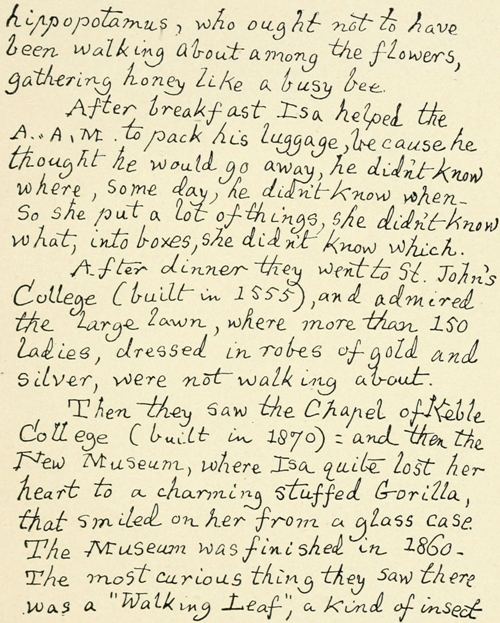 hippopotamus, who ought not to have
been walking about among the flowers,
gathering honey like a busy bee.
After breakfast Isa helped the
A.. A. M. to pack his luggage, because he
thought he would go away, he didn't know
where, some day, he didn't know when-
So she put a lot of things, she didn't know
what, into boxes, she didn't know which.
After dinner they went to St. John's
College (built in 1555), and admired
the large lawn, where more than 150
ladies, dressed in robes of gold and
silver, were not walking about.
Then they saw the Chapel of Keble
College (built in 1870) : and then the
New Museum, where Isa quite lost her
heart to a charming stuffed Gorilla,
that smiled on her from a glass case.
The Museum was finished in 1860-
The most curious thing they saw there
was a "Walking Leaf", a kind of insect